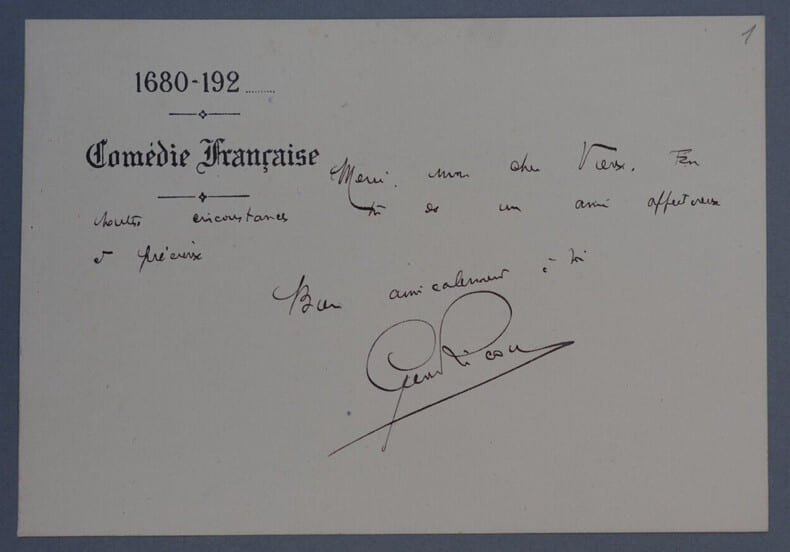 1
1680-192........
Comédie Française
Merci, mon cher Vieux. En
toutes circonstances tu es un ami affectueux
et précieux
Bien amicalement à toi